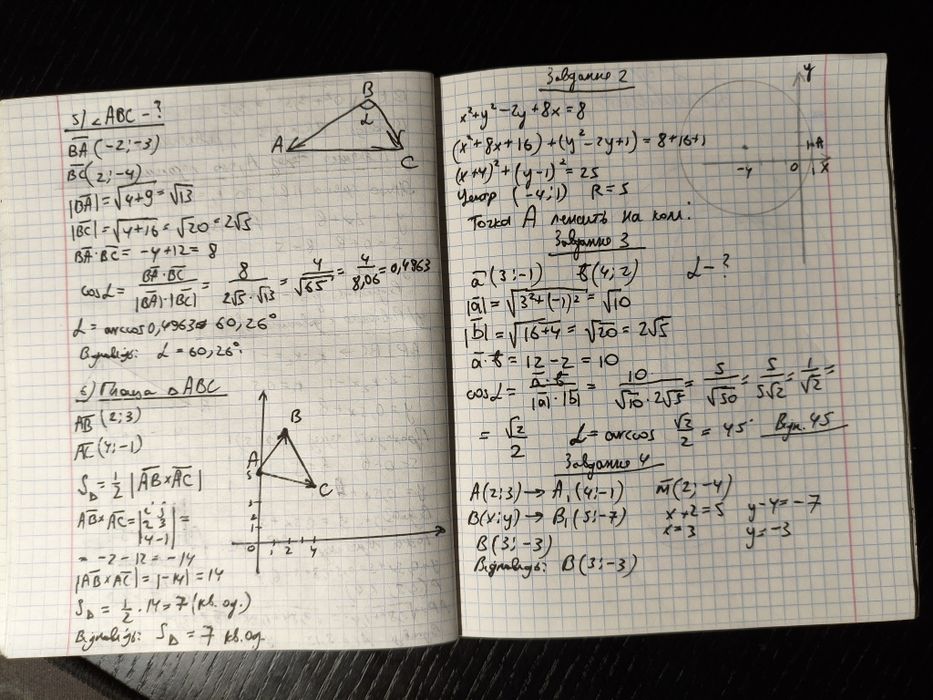 5) ∠ABC - ?
B
α
A
C
BA (-2; -3)
BC (2; -4)
|BA| = √4+9 = √13
|BC| = √4+16 = √20 = 2√5
BA · BC = -4+12 = 8
cos α = BA·BC / |BA|·|BC| = 8 / 2√5·√13 = 4 / √65 = 4 / 8,06 = 0,4963
α = arccos 0,4963 = 60,26°
Відповідь: α = 60,26°.
6) Площа △ABC
AB (2; 3)
AC (4; -1)
S△ = 1/2 |AB × AC|
AB × AC = |i j 2 3 4 -1| =
= -2 - 12 = -14
|AB × AC| = |-14| = 14
S△ = 1/2 · 14 = 7 (кв. од.)
Відповідь: S△ = 7 кв. од.
B
A
5
C
2
1
0 1 2 4
Завдання 2
x² + y² - 2y + 8x = 8
(x² + 8x + 16) + (y² - 2y + 1) = 8 + 16 + 1
(x + 4)² + (y - 1)² = 25
Центр (-4; 1) R = 5
Точка A лежить на колі
y
A
-4 0 1 x
Завдання 3
a (3; -1) b (4; 2) α - ?
|a| = √3² + (-1)² = √10
|b| = √16+4 = √20 = 2√5
a · b = 12 - 2 = 10
cos α = a·b / |a|·|b| = 10 / √10·2√5 = 5 / √50 = 5 / 5√2 = 1 / √2 =
= √2 / 2 α = arccos √2 / 2 = 45° Відп. 45
Завдання 4
A(2; 3) → A₁(4; -1) m(2; -4)
B(x; y) → B₁(5; -7) x + 2 = 5 y - 4 = -7
x = 3 y = -3
B(3; -3)
Відповідь: B(3; -3)